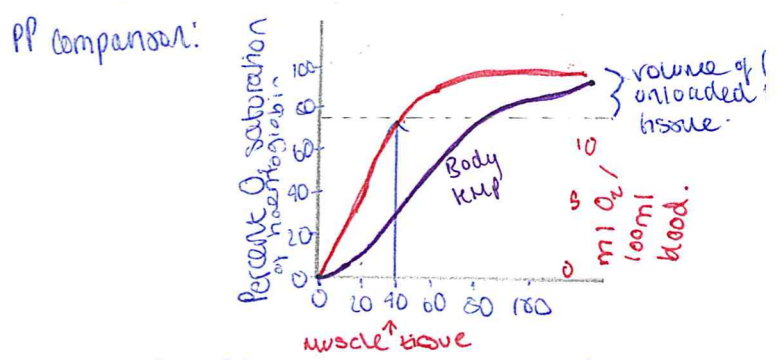 PP comparison:
Percent O₂ saturation
of haemoglobin
100
80
60
40
20
0
0 20 40 60 80 100
muscle ↑ tissue
Body
volume of
unloaded
tissue.
10
5
0
ml O₂ /
100ml
blood.